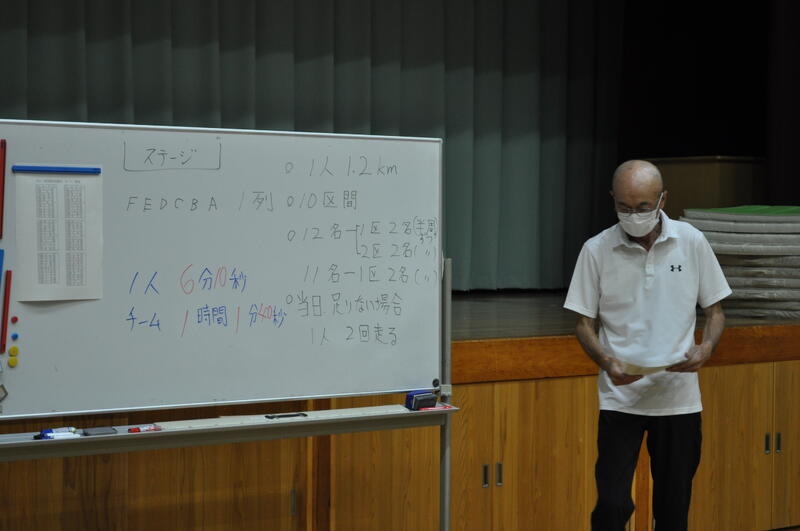 ステージ
FEDCBA 1列
1人 6分10秒
チーム 1時間1分40秒
○ 1人 1.2km
○ 10区間
○ 12名ー1区2名(半周ずつ)
2区2名(〃)
11名ー1区2名(〃)
○ 当日、足りない場合
1人 2回走る